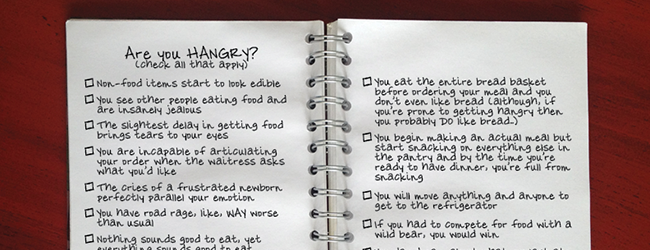 Are you HANGRY?
(check all that apply)
Non-food items start to look edible
You see other people eating food and
are insanely jealous
The slightest delay in getting food
brings tears to your eyes
You are incapable of articulating
your order when the waitress asks
what you'd like
The cries of a frustrated newborn
perfectly parallel your emotion
You have road rage, like, WAY worse
than usual
Nothing sounds good to eat, yet
everything sounds good to eat
You eat the entire bread basket
before ordering your meal and you
don't even like bread (although, if
you're prone to getting hangry then
you probably DO like bread.)
You begin making an actual meal but
start snacking on everything else in
the pantry and by the time you're
ready to have dinner, you're full from
snacking
You will move anything and anyone to
get to the refrigerator
If you had to compete for food with a
wild bear, you would win